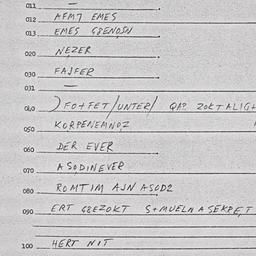 011 —
012 AFM7 EMES
013 EMES GBENOSN
020 NEZER
030 FAJFER
031 —
040 ) FO+FET/UNTER/ QA? ZOKTALIGH
050 KORPENEMNOZ
060 DER EVER
070 ASODINEVER
080 ROMTIM AJN ASOD2
090 ERT GBEZOKT S+MUELNASEKRET
100 HERT NIT